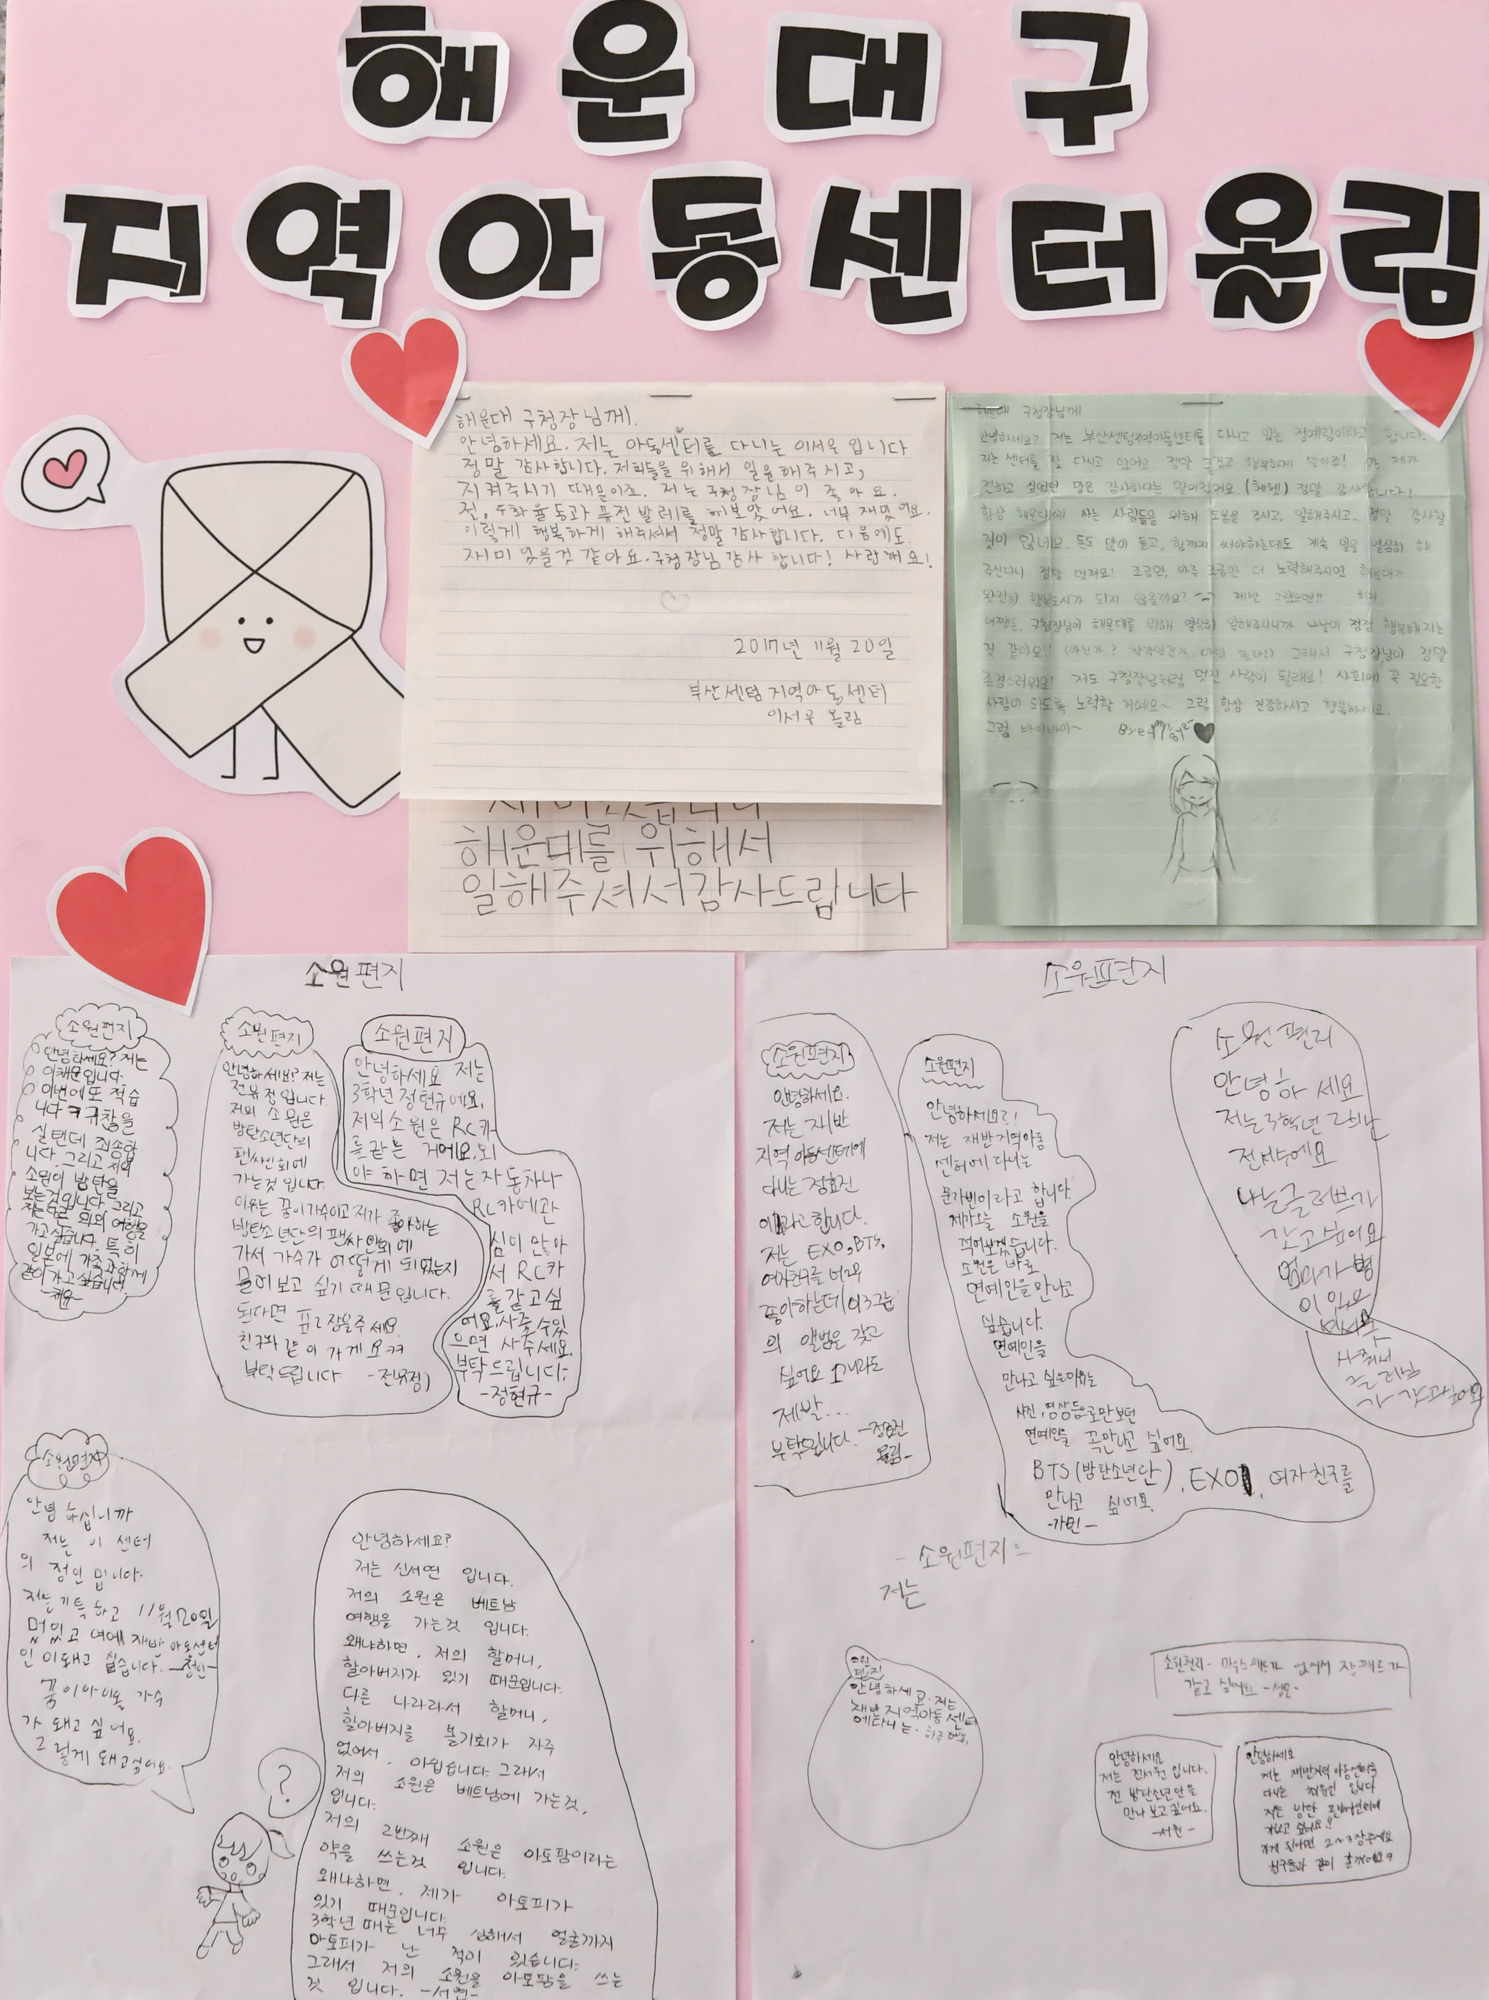 해운대구
지역아동센터올림
해운대 구청장님께.
안녕하세요. 저는 아동센터를 다니는 이서윤 입니다
정말 감사합니다. 저희들을 위해서 일을 해주시고,
지켜주시기 때문이죠. 저는 구청장님이 좋아요.
전, 수화 율동과 퓨전 발레를 해보았어요. 너무 재밌어요.
이렇게 행복하게 해주셔서 정말 감사합니다. 다음에도
재미있을것 같아요. 구청장님 감사합니다! 사랑해요!
2017년 11월 20일
부산센텀 지역아동센터
이서윤 올림
해운대를 위해서
일해주셔서감사드립니다
해운대 구청장님께
안녕하세요? 저는 부산센텀지역아동센터를 다니고 있는 정계림이라고 합니다.
저는 센터를 잘 다니고 있어요. 정말 즐겁고 행복하게 말이죠! 제가
전하고 싶었던 말은 감사하다는 말이었어요. (헤헷) 정말 감사합니다!
항상 해운대에 사는 사람들을 위해 도움을 주시고, 일해주시고.. 정말 감사할
것이 많네요. 돈도 많이 들고, 힘까지 써야하는데도 계속 일을 열심히 해
주신다니 정말 멋져요! 조금만, 아주 조금만 더 노력해주시면 해운대가
완전히 행복도시가 되지 않을까요? 제발 그랬으면!! 히히
어쨌든, 구청장님이 해운대를 위해 열심히 일해주시니까 나날이 점점 행복해지는
것 같아요!! 그래서 구청장님이 정말
존경스러워요! 저도 구청장님처럼 멋진 사람이 될래요! 사회에 꼭 필요한
사람이 되도록 노력할 거예요~ 그럼 항상 건강하시고 행복하세요.
그럼 바이바이~
소원 편지
소원편지
안녕하세요? 저는
이채윤입니다.
이번에 또 적습
니다 ㅋㅋ 귀찮을
실텐데 죄송합
니다. 그리고 저의
소원이 방탄을
보는것입니다. 그리고
가고싶습니다. 특히
일본에 가족과함께
같이가고싶습니다.
-채윤-
소원편지
안녕하세요? 저는
전유정입니다.
저의 소원은
방탄소년단의
팬싸인회에
가는것 입니다.
이유는 꿈이가수이고 제가 좋아하는
방탄소년단의 팬싸인회에
가서 가수가 어떻게 되었는지
물어보고 싶기 때문입니다.
된다면 표 2장을주세요.
친구와 같이 가게요ㅋㅋ
부탁드립니다 -전유정)
소원편지
안녕하세요 저는
3학년 정현규에요.
저의소원은 RC카
를같는 거에요. 외
야 하면 저는자동차나
RC카에관
심이 많아
서 RC카
를같고싶
어요. 사줄수있
으면 사주세요.
부탁드립니다.
-정현규-
소원편지
안녕하십니까
저는 이 센터
의 정인 입니다.
저는기특하고 11월20일
멌있고 예에 재반 아동센터
인 이돼고 싶습니다. -정인-
꿈이아이돌 가수
가 돼고 싶어요.
그렇게 돼고싶어요.
안녕하세요?
저는 신서연 입니다.
저의 소원은 베트남
여행을 가는것 입니다.
왜냐하면, 저의 할머니,
할아버지가 있기 때문입니다.
다른 나라라서 할머니,
할아버지를 볼기회가 자주
없어서, 아쉽습니다. 그래서
저의 소원은 베트남에 가는것,
입니다.
저의 2번째 소원은 아토팜이라는
약을 쓰는것 입니다.
왜냐하면, 제가 아토피가
있기 때문입니다.
3학년 때는 너무 심해서 얼굴까지
아토피가 난 적이 있습니다.
그래서 저의 소원을 아토팜을 쓰는
것 입니다. -서연-
?
소원편지
소원편지
안녕하세요.
저는 재반
지역 아동센터에
다니는 정효진
이라고합니다.
저는 EXO, BTS,
여자친구를 너무
좋아하는데 이 3그룹
의 앨범을 갖고
싶어요 1개라도
제발...
부탁드립니다. -정효진
올림-
소원편지
안녕하세요?!
저는 재반지역아동
센터에 다니는
문가빈이라고 합니다.
제가오늘 소원을
적어보겠습니다.
소원은 바로
연예인을만나고
싶습니다.
연예인을
만나고 싶은이유는
사진, 영상등으로만보던
연예인을 꼭만나고 싶어요.
BTS(방탄소년단), EXO, 여자친구를
만나고 싶어요.
-가빈-
소원 편지
안녕하 세요
저는3학년
나는글러브가
갖고싶어요
엄마가 병
이 있어요
사줘서
글러브
가 갖고싶어요
-소원편지-
저는
소원
편지
안녕하세요. 저는
재반지역아동센터
에다니는
소원편지- 마우스패드가 없어서 장패드가
갖고 싶어요
안녕하세요
저는 전서원 입니다.
전 방탄소년단을
만나 보고싶어요.
-서원-
안녕하세요
저는 재반지역 아동센터를
다니는 최유진 입니다
저는 방탄 팬싸인회에
가고 싶어요!!
가게 된다면 2~3장주세요
친구들과 같이 갈꺼에요